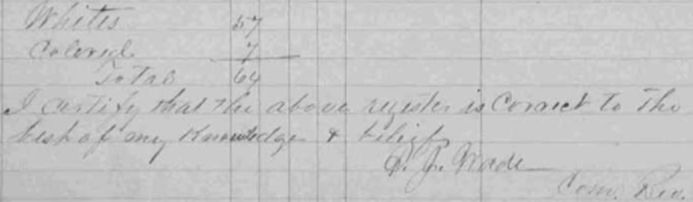 Whites 57
Colored 7
Total 64
I certify that the above register is Correct to The
best of my Knowledge & belief
J. Wade
Com. Rev.